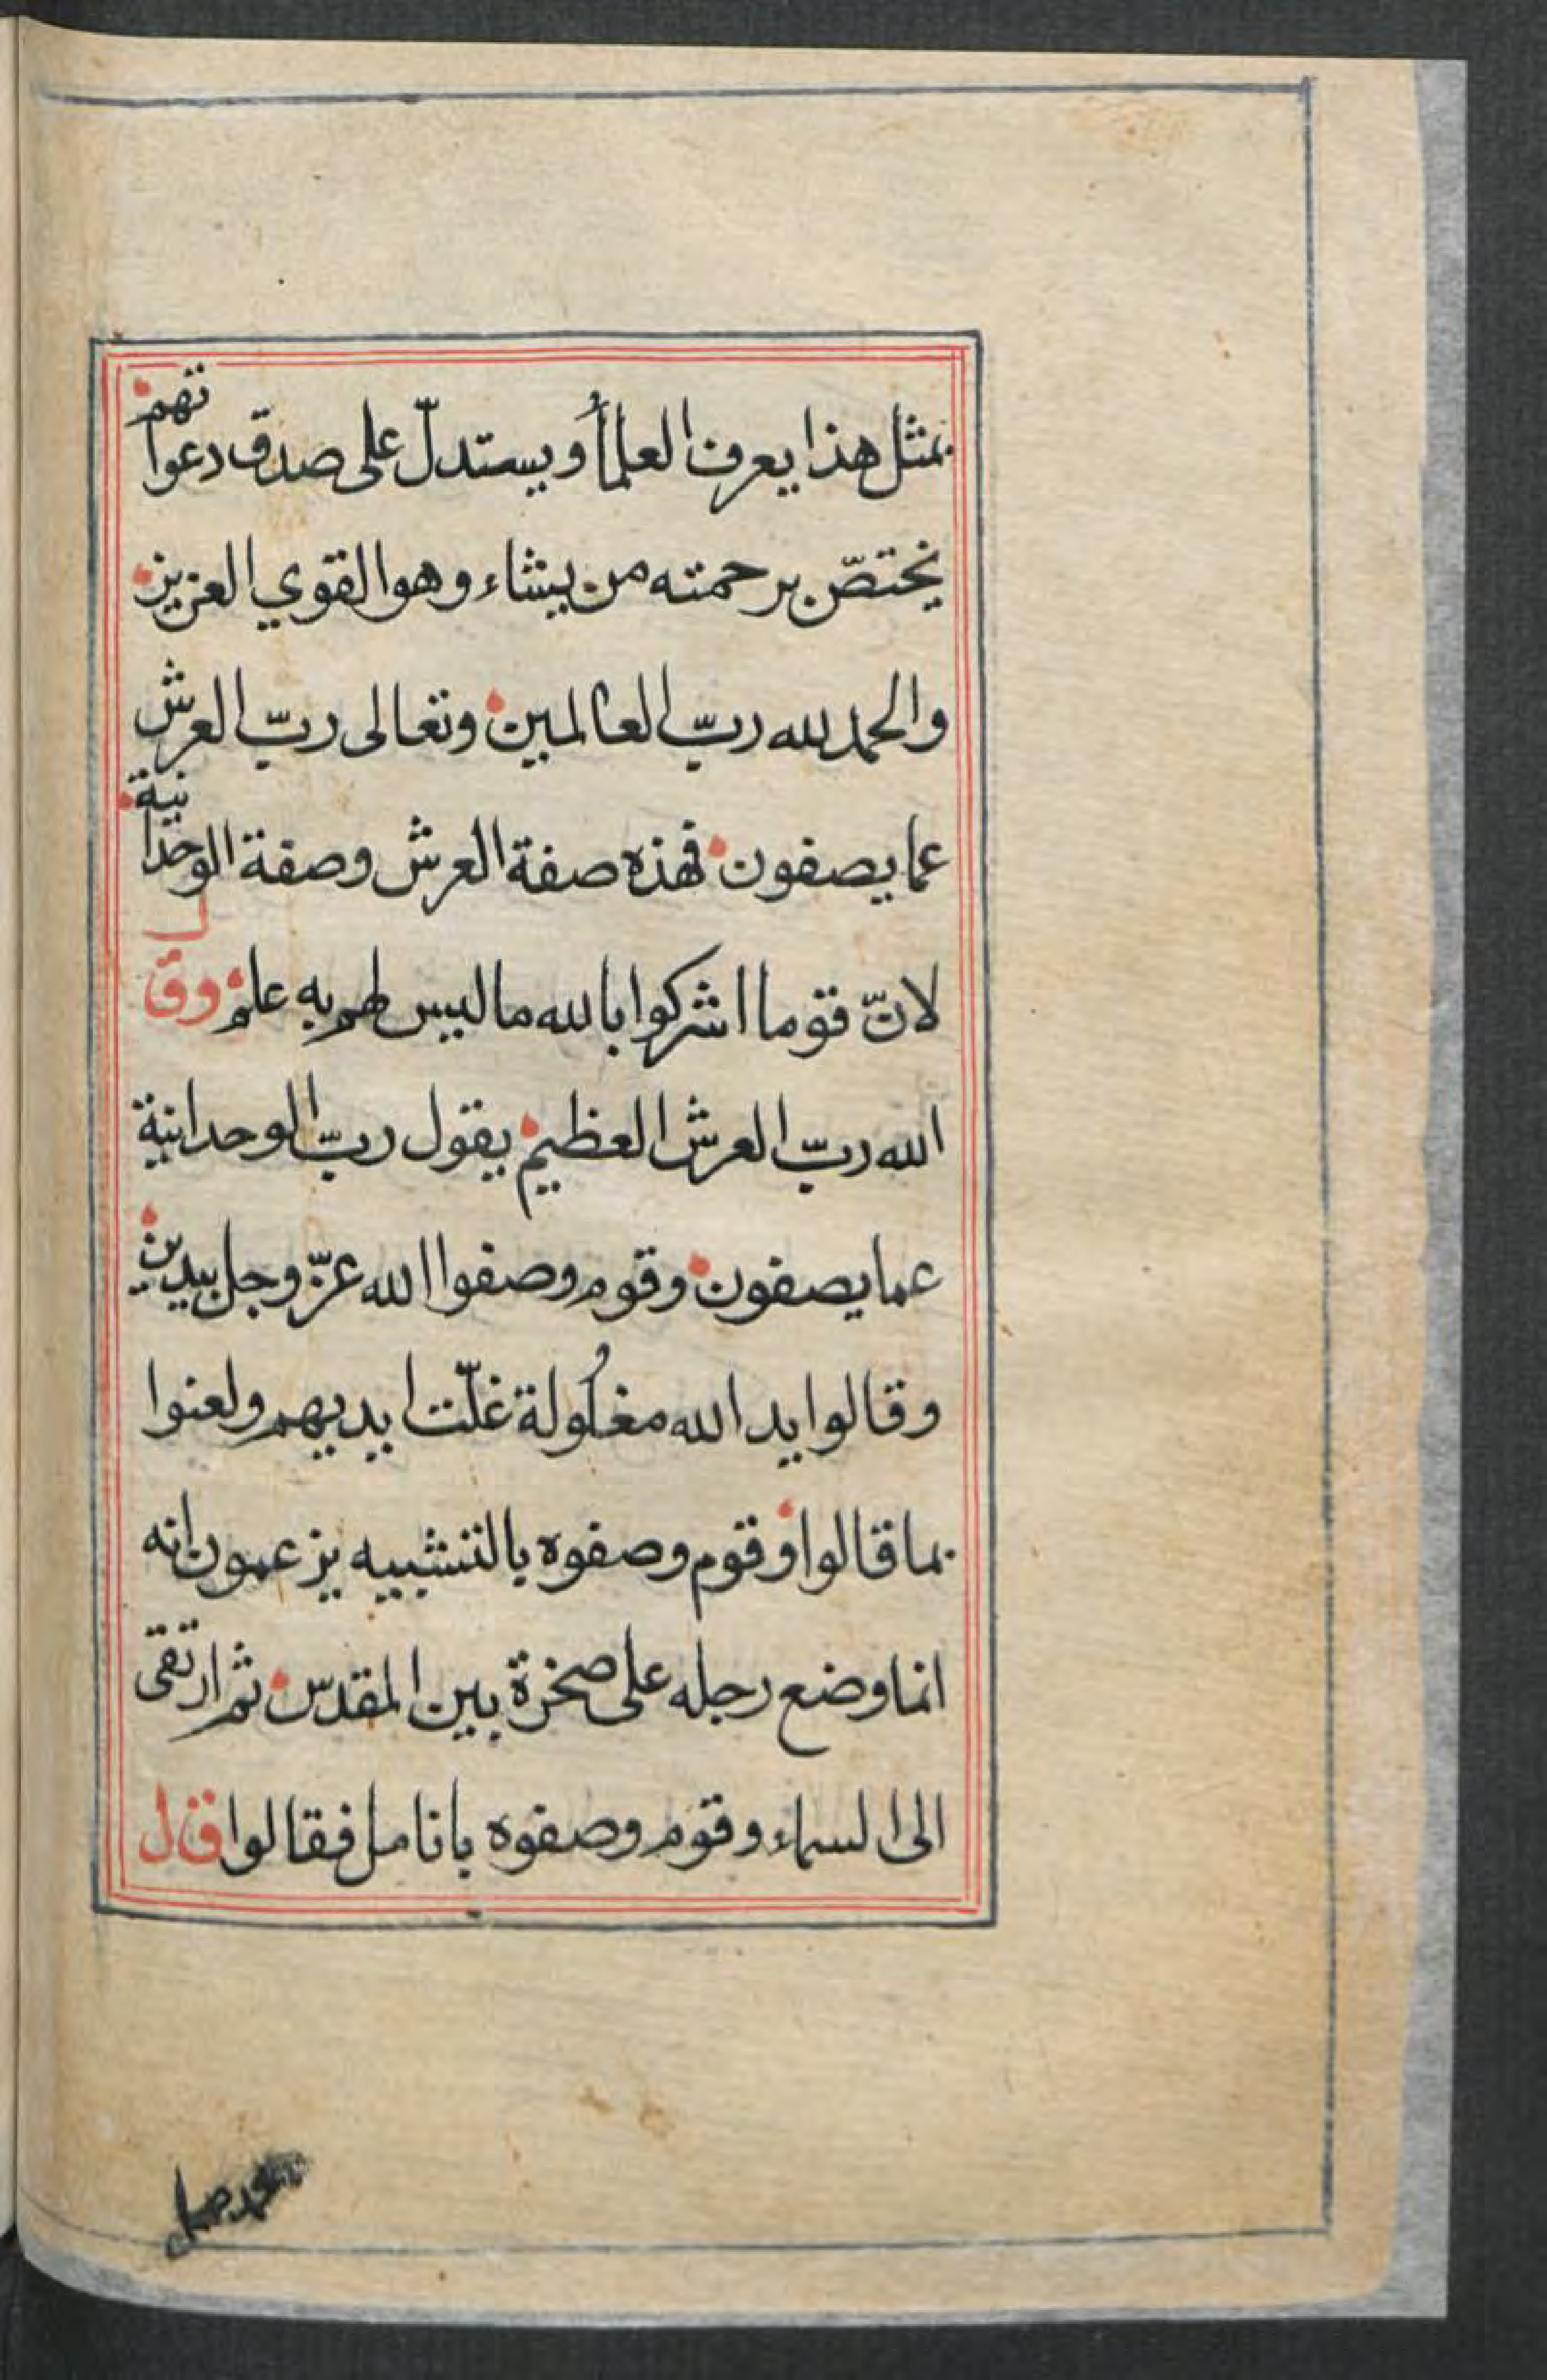 بمثل هذا يعرف العلمأ ويستدلّ على صدق دعواتهم
يختصّ برحمته من يشاء وهو القوي العزيز
والحمد لله ربّ العالمين وتعالى ربّ العرش
عما يصفون فهذه صفة العرش وصفة الوحدانية
لانّ قوما اشركوا بالله ما ليس لهم به علم وقل
الله ربّ العرش العظيم يقول ربّ الوحدانية
عما يصفون وقوم وصفوا الله عزّ وجل بيدين
وقالوا يد الله مغلولة غلّت ايديهم ولعنوا
بما قالوا وقوم وصفوه بالتشبيه يزعمون انه
انما وضع رجله على صخرة بين المقدس ثم ارتقى
الى السماء وقوم وصفوه بانامل فقالوا قال
محمد صلى